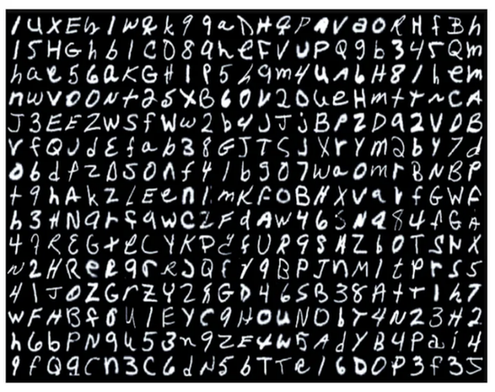 1 U X E h 1 W q k 9 9 a D H Q P A V a O R H f B h
1 5 H G h b 1 C D 8 q h e F V U P Q 9 b 3 4 5 Q m
h a e 5 6 a K G H 1 P 5 h 9 m 4 U n 6 H 8 1 h e m
n w V 0 0 N t 2 5 X B 6 0 V 2 D U e H m t r n C A
J 3 E E Z W S f W w 2 b 4 J T j B P Z D 9 2 V D B
r f Q J d E f a b 3 8 G J T S J X r Y m Q b Y 7 d
0 b d P Z D S 0 n f 4 1 b 9 0 7 w a 0 m r B N B P
t 9 h A k Z L E e n 1 m K F 0 B H X V a r f G W F
h 3 H N 9 r f 9 W C Z F d A W 4 6 S N 9 8 4 A G A
4 9 R E G t e C Y K P d f U R 9 S H Z b 0 T S N X
N 2 H R e e 9 r R J Q f Y 9 B P J n M 1 t P r 5 5
4 1 J 0 Z G r Z Y 2 8 G D 4 6 5 B 3 8 A t r 1 h 7
W F H B f 8 U 1 E Y C 9 H 0 U N 0 b Y 4 N 2 3 H 2
h 6 b P N 9 4 5 3 n 9 Z E 4 W 5 A d Y B 4 P a i 4
9 f Q 9 C n 3 C 6 d N 5 b T T e 1 6 D 0 P 3 f 3 5